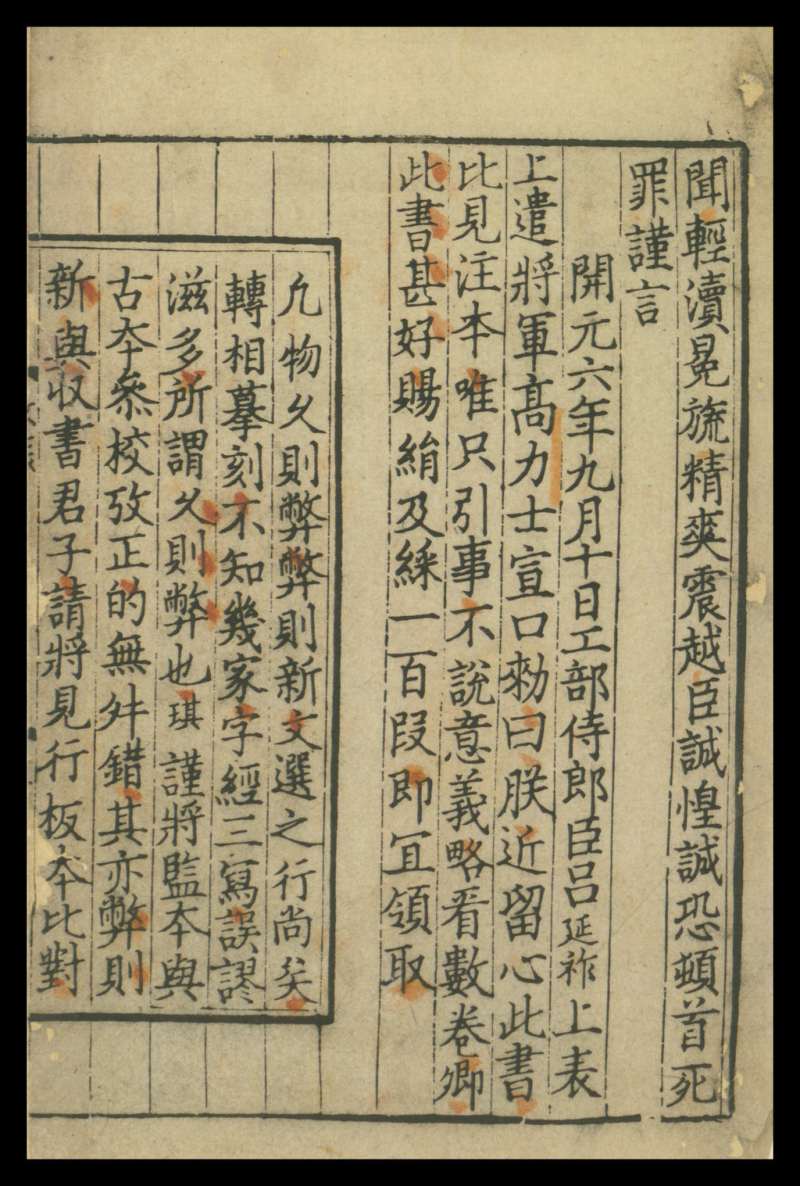 聞輕瀆冕旒精爽震越臣誠惶誠恐頓首死
罪謹言
開元六年九月十日工部侍郎臣呂延祚上表
上遣將軍髙力士宣口勑曰朕近留心此書
比見注本唯只引事不說意義略看數卷卿
此書甚好賜絹及綵一百段即冝領取
凡物久則弊弊則新文選之行尚矣
轉相摹刻不知幾家字經三寫誤謬
滋多所謂久則弊也琪謹將監夲與
古夲叅校攷正的無舛錯其亦弊則
新與収書君子請將見行板夲比對